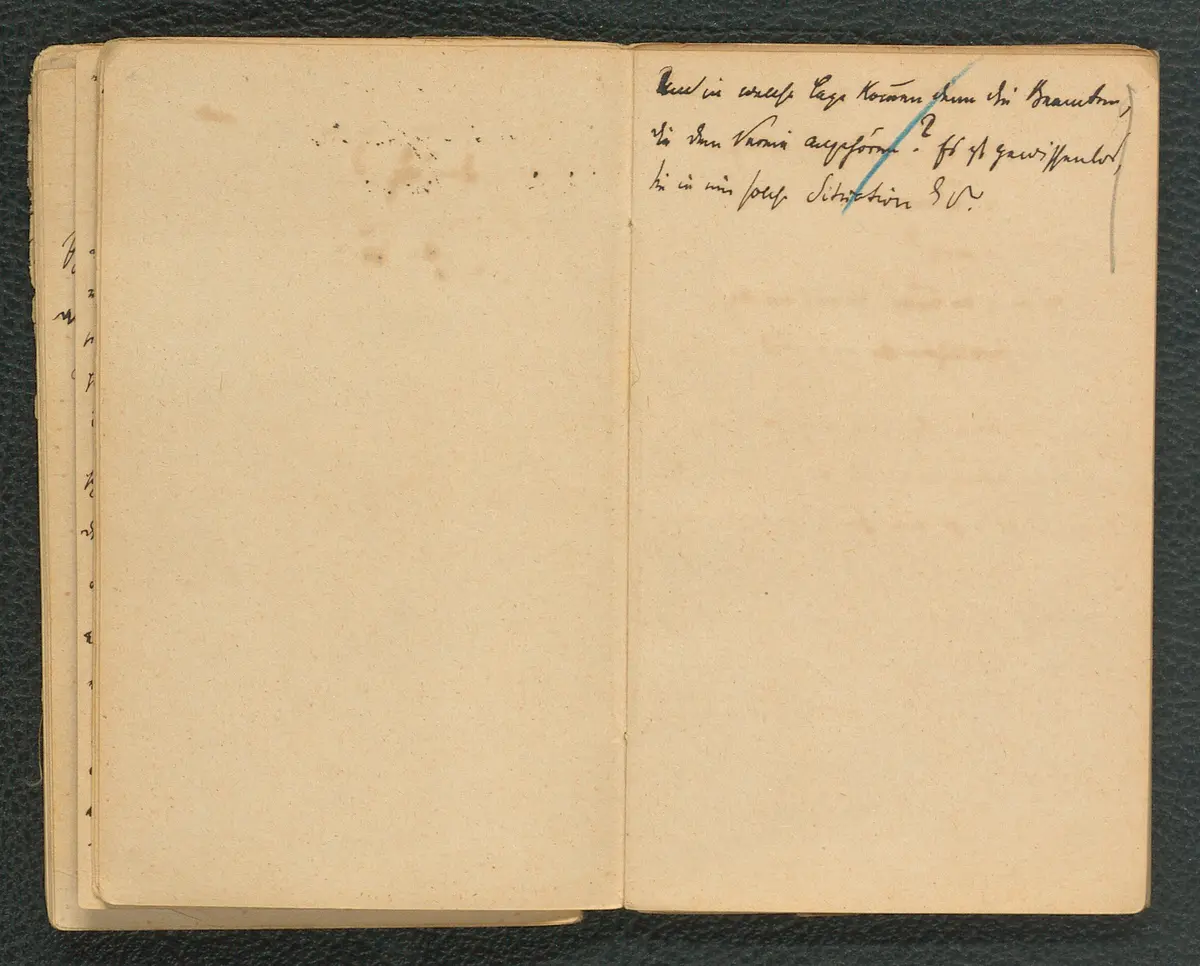 Und in welche Lage kom̄en denn die Beamten,
die dem Verein angehören? Es ist gewissenlos,
sie in eine solche Situation